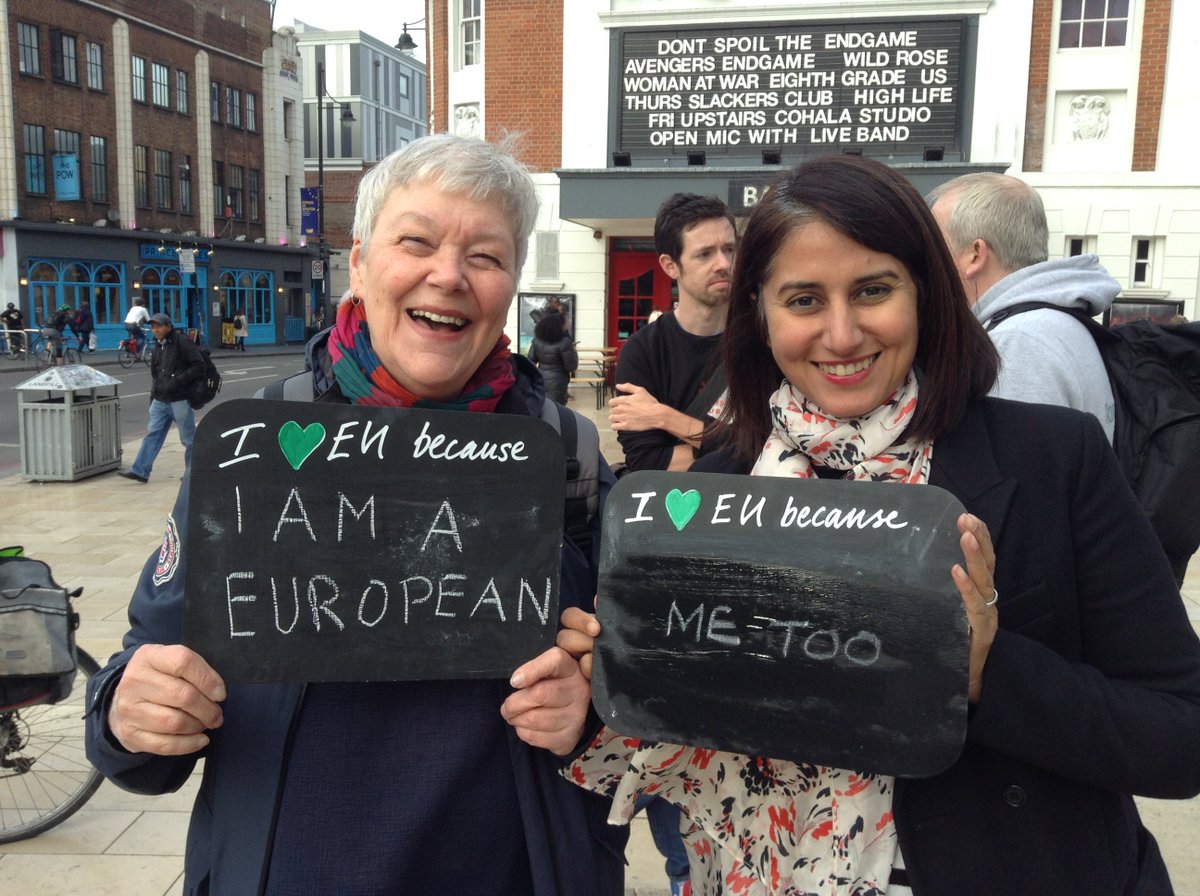 DONT SPOIL THE ENDGAME
AVENGERS ENDGAME WILD ROSE
WOMAN AT WAR EIGHTH GRADE US
THURS SLACKERS CLUB HIGH LIFE
FRI UPSTAIRS COHALA STUDIO
OPEN MIC WITH LIVE BAND
POW
I ♥ EU because
I AM A
EUROPEAN
I ♥ EU because
ME TOO